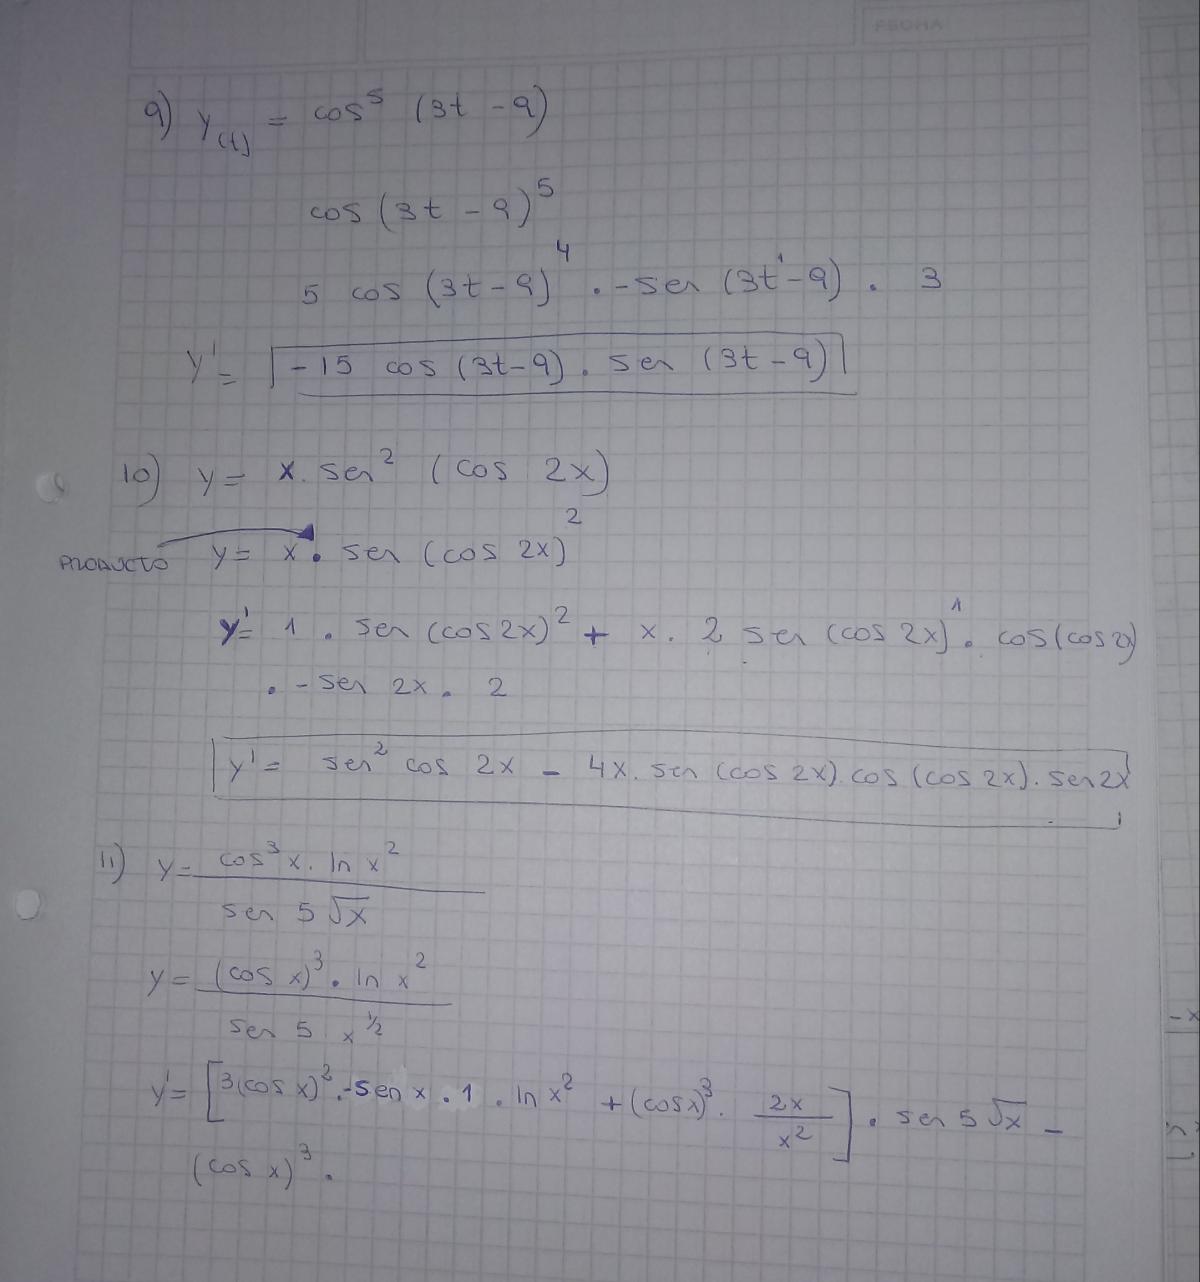 FECHA
9) y(t) = cos⁵ (3t - 9)
cos (3t - 9)⁵
5 cos (3t - 9)⁴ . - sen (3t¹ - 9) . 3
y' = -15 cos (3t - 9) . sen (3t - 9)
10) y = x . sen² (cos 2x)
PRODUCTO y = x . sen (cos 2x)²
y' = 1 . sen (cos 2x)² + x . 2 sen (cos 2x)¹ . cos (cos 2x)
. - sen 2x . 2
y' = sen² cos 2x - 4x . sen (cos 2x) . cos (cos 2x) . sen 2x
11) y = cos³ x . ln x²
sen 5 √x
y = (cos x)³ . ln x²
sen 5 x^½
y' = [3(cos x)² . - sen x . 1 . ln x² + (cos x)³ . 2x/x²] . sen 5 √x -
(cos x)³ .